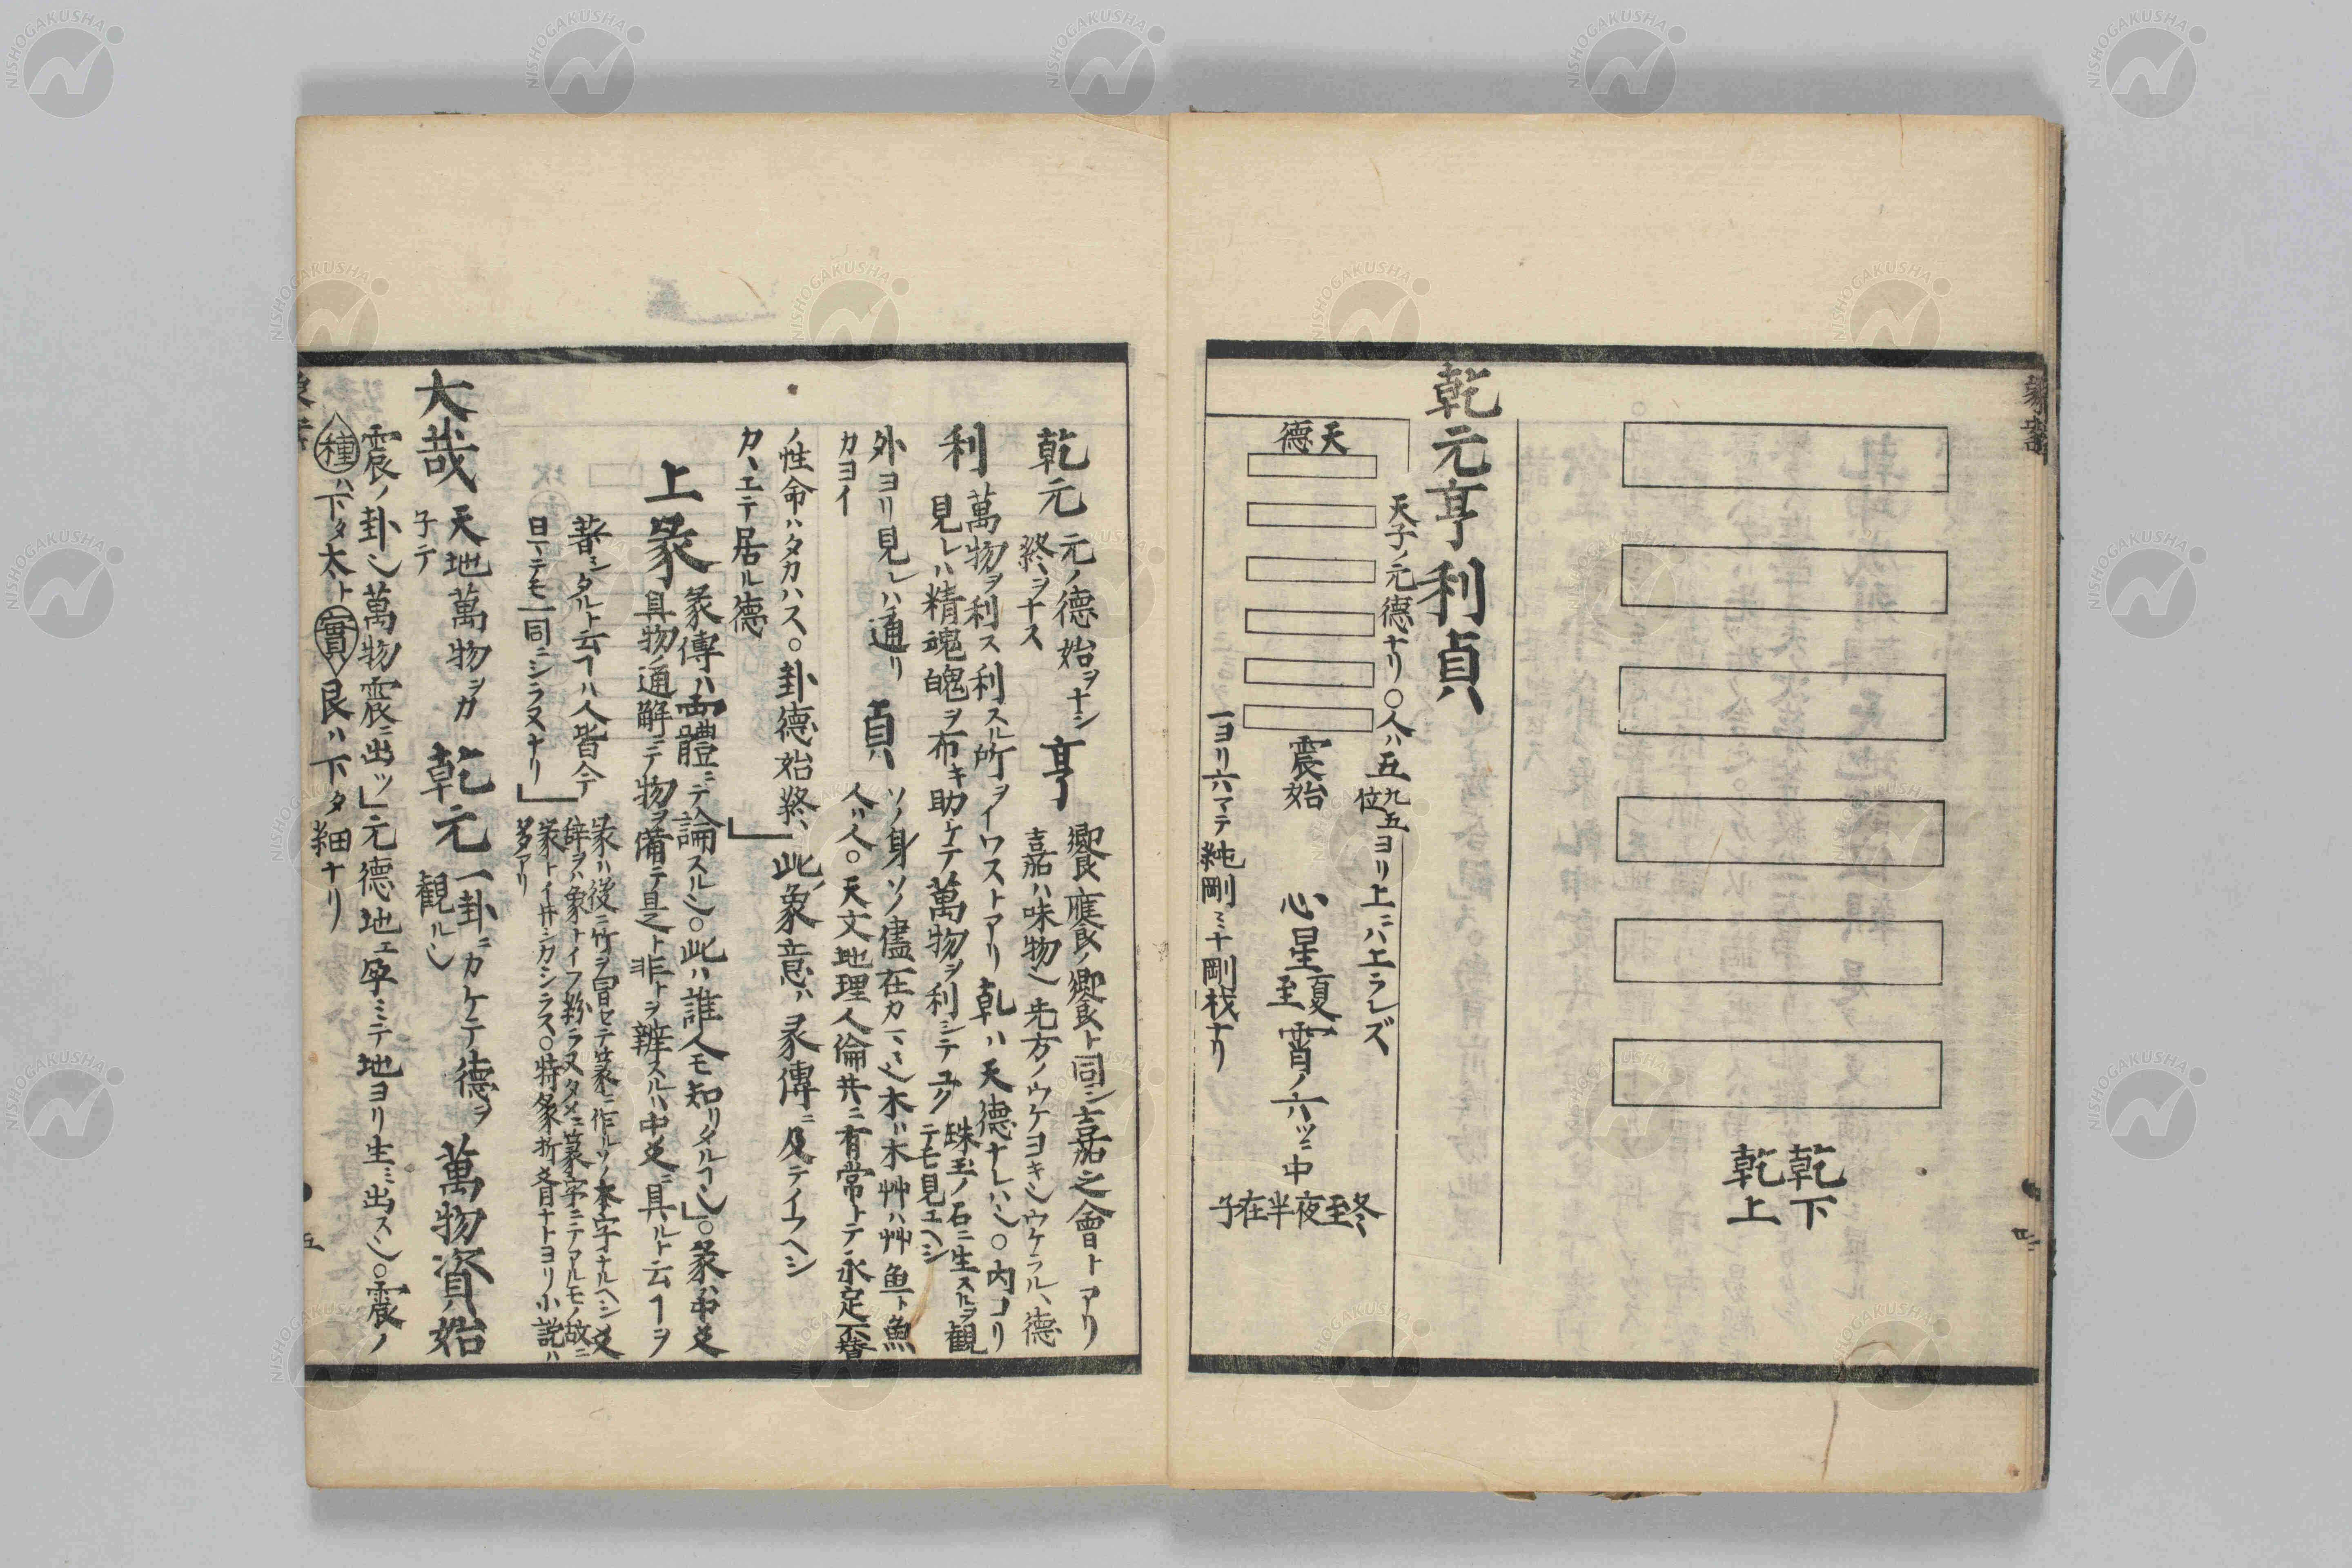 乾下
乾上
乾元亨利貞
天子ノ元德ナリ〇人ハ五九五位ヨリ上ニハエラレズ
天德
震始
心星夏至霄ノ六ツニ中
冬至夜半在子
一ヨリ六マテ純剛ミナ剛栈ナリ
乾元 元ノ德始ヲナシ
終ヲナス
亨 饗應ノ饗ト同シ嘉之會トアリ
嘉ハ味物也先方ノウケヨキ也ウケラルヽ德
利 萬物ヲ利ス利スル所ヲイワストアリ乾ハ天德ナレハ也〇内コリ
見レハ精魂魄ヲ布キ助ケテ萬物ヲ利シテユク
珠玉ノ石ニ生スルヲ観
テモ見ユヘシ
外ヨリ見レハ通リ
カヨイ
貞 ソノ身ソノ儘在カ一ミ也木ハ木艸ハ艸魚ト魚
人ハ人〇天文地理人倫共ニ有常トテ永定不替
ノ性命ハタカハス〇卦德始終ハ此象意ハ彖傳ニ及テイフヘシ
カヽエテ居ル德
上彖 彖傳ハ 體ニテ論スル也〇此ハ誰人モ知リタルヿ也〇彖ハ中爻
具物ノ通解ニテ物ヲ備テ是ト非トヲ辨スルハ中爻ニ具ルト云ヿヲ
著シタルト云ヿハ人皆今
日ニテモ一同ニシラヌナリ
彖ハ後ニ竹ヲ冒セテ篆ニ作ルソノ本字ナルヘシ爻
辞ヲハ象トイフ粉ラヌタメニ篆字ニテアルモノ故ニ
彖トイ井シカシラス〇特彖折 ナトヨリ小説ハ
多アリ
大哉 天地萬物ヲカ
子テ
乾元 一卦ニカケテ德ヲ
観ル也
萬物資始
震ノ卦也萬物震ニ出ツ」元德地エ孕ミテ地ヨリ生ミ出ス也〇震ノ
種ハ下タ太ト實艮ハ下タ細ナリ
五